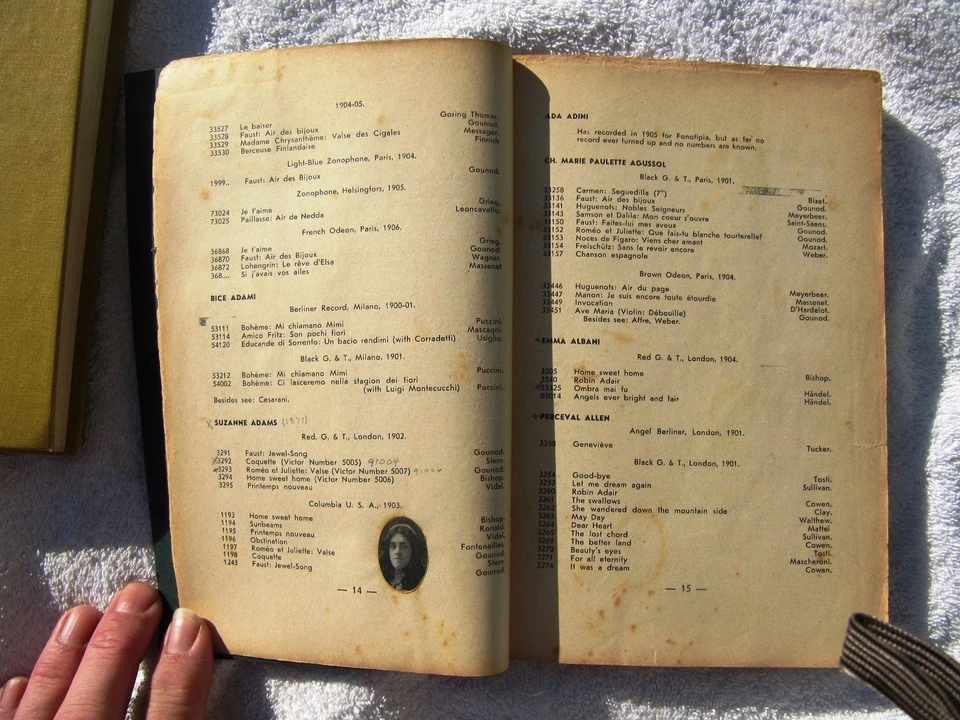 1904-05.
33527 Le baiser Goring Thomas.
33528 Faust: Air des bijoux Gounod.
33529 Madame Chrysanthème: Valse des Cigales Messager.
33530 Berceuse Finlandaise Finnish
Light-Blue Zonophone, Paris, 1904.
1999.. Faust: Air des Bijoux Gounod.
Zonophone, Helsingfors, 1905.
73024 Je t'aime Grieg.
73025 Paillasse: Air de Nedda Leoncavallo.
French Odeon, Paris, 1906.
36868 Je t'aime Grieg.
36870 Faust: Air des Bijoux Gounod.
36872 Lohengrin: Le rêve d'Elsa Wagner.
368.... Si j'avais vos ailes Massenet
BICE ADAMI
Berliner Record, Milano, 1900-01.
53111 Bohème: Mi chiamano Mimi Puccini.
53114 Amico Fritz: Son pochi fiori Mascagni.
54120 Educande di Sorrento: Un bacio rendimi (with Corradetti) Usiglio.
Black G. & T., Milano, 1901.
53212 Bohème: Mi chiamano Mimi Puccini.
54002 Bohème: Ci lasceremo nella stagion dei fiori
(with Luigi Montecucchi) Puccini.
Besides see: Cesarani.
SUZANNE ADAMS (1877)
Red. G. & T., London, 1902.
3291 Faust: Jewel-Song Gounod.
3292 Coquette (Victor Number 5005) 91004 Stern.
3293 Roméo et Juliette: Valse (Victor Number 5007) Gounod.
3294 Home sweet home (Victor Number 5006) Bishop.
3295 Printemps nouveau Vidal.
Columbia U. S. A., 1903.
1193 Home sweet home Bishop.
1194 Sunbeams Ronald.
1195 Printemps nouveau Vidal.
1196 Obstination Fontenailles.
1197 Roméo et Juliette: Valse Gounod.
1198 Coquette Stern.
1243 Faust: Jewel-Song Gounod.
— 14 —
ADA ADINI
Has recorded in 1905 for Fonotipia, but as far no
record ever turned up and no numbers are known.
CH. MARIE PAULETTE AGUSSOL
Black G. & T., Paris, 1901.
33258 Carmen: Seguedilla (7") Bizet.
33136 Faust: Air du bijoux Gounod.
33141 Huguenots: Nobles Seigneurs Meyerbeer.
33143 Samson et Dalila: Mon coeur s'ouvre Saint-Saens.
33150 Faust: Faites-lui mes aveux Gounod.
33152 Roméo et Juliette: Que fais-tu blanche tourterelle? Gounod.
33153 Noces de Figaro: Viens cher amant Mozart.
33154 Freischütz: Sans le revoir encore Weber.
33157 Chanson espagnole
Brown Odeon, Paris, 1904.
33446 Huguenots: Air du page Meyerbeer.
33447 Manon: Je suis encore toute étourdie Massenet.
33449 Invocation D'Hardelot.
33451 Ave Maria (Violin: Débouille) Gounod.
Besides see: Affre, Weber.
EMMA ALBANI
Red G. & T., London, 1904.
3505 Home sweet home Bishop.
3540 Robin Adair
53325 Ombra mai fu Händel.
03014 Angels ever bright and fair Händel.
PERCEVAL ALLEN
Angel Berliner, London, 1901.
3238 Geneviève Tucker.
Black G. & T., London, 1901.
3254 Good-bye Tosti.
3257 Let me dream again Sullivan.
3260 Robin Adair
3261 The swallows Cowen.
3262 She wandered down the mountain side Clay.
3263 May Day Walthew.
3264 Dear Heart Mattei
3265 The lost chord Sullivan.
3269 The better land Cowen.
3270 Beauty's eyes Tosti.
3271 For all eternity Mascheroni.
3274 It was a dream Cowen.
— 15 —